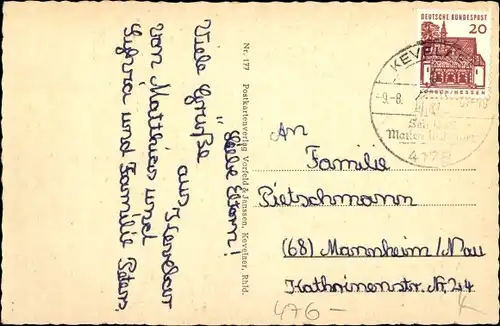 Liebe Eltern!
Viele Grüße
aus Kevelaer
von Matthias und
Sylvia und Familie Peters
Nr. 177 Postkartenverlag Vorfeld & Janssen, Kevelaer, Rhld.
DEUTSCHE BUNDESPOST
20
LORSCH/HESSEN
KEVELAER
-9.-8.
4178
An
Familie
Pietschmann
(68) Mannheim/Nau
Katharinenstr. Nr. 24
476-